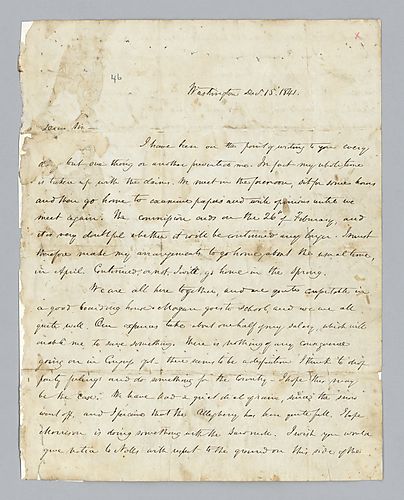 46
Washington Decr 15th 1841.
Dear Sir —
I have been on the point of writing to you every
day but one thing or another prevented me. In fact my whole time
is taken up with the claims. We meet in the forenoon, sit for some hours
and then go home to examine papers and write opinions until we
meet again. The commission ends on the 26th of February, and
it is very doubtful whether it will be continued any longer. I must
therefore make my arrangements to go home, about the usual time,
in April. Continued or not, I will go home in the Spring.
We are all here together, and are quite comfortable in
a good boarding house. goes to School, and we are all
quite well. Our expenses take about one half of my salary, which will
enable me to save something. There is nothing of any consequence
going on in Congress yet. There seems to be a disposition I think to drop
party feelings and do something for the Country — I hope this may
be the case. We have had a great deal of rain, since the snow
went off, and I presume that the Allegheny has been quite full. I hope
Morrison is doing something with the . I wish you would
give notice to Noble with respect to the ground on this side of the